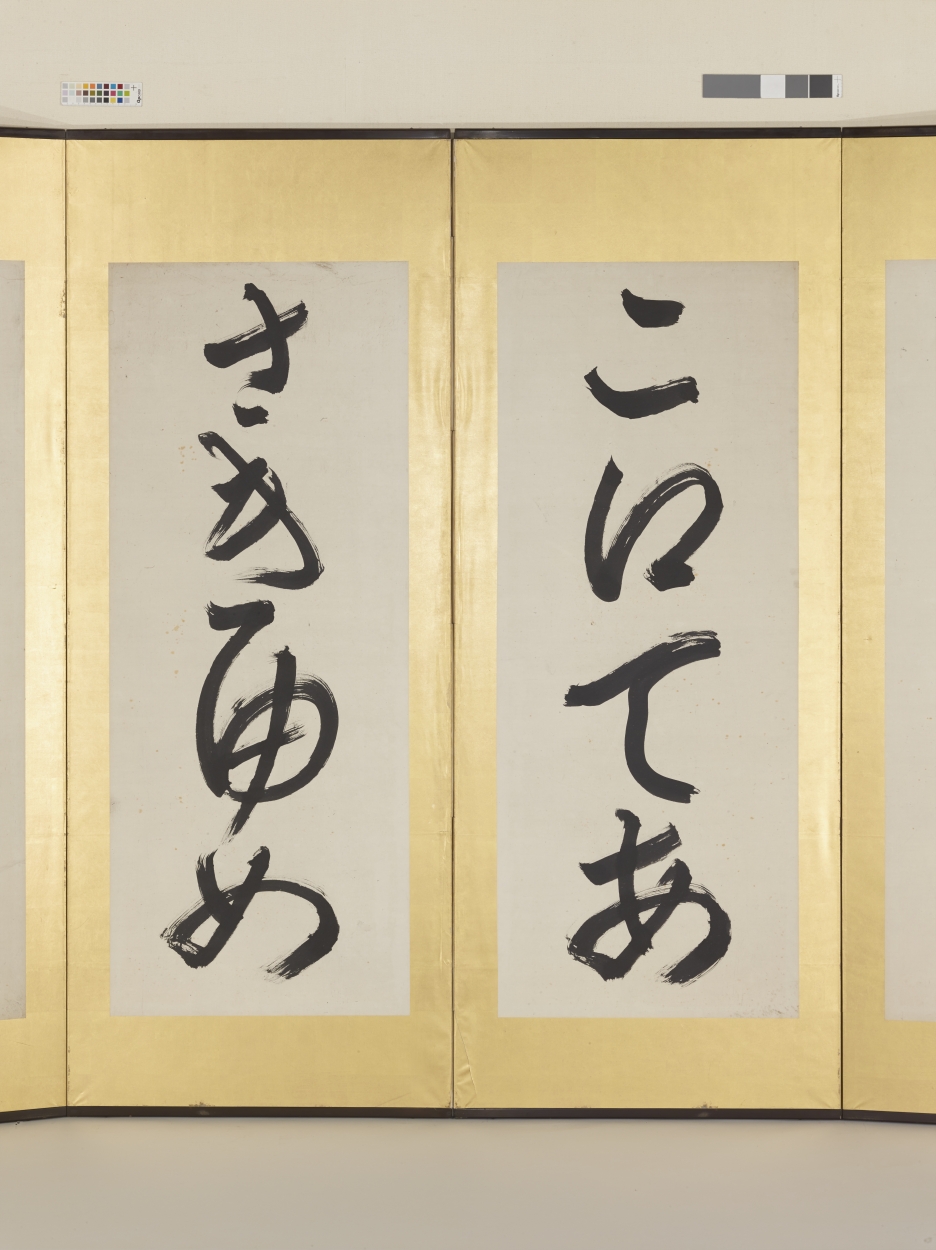 こえてあ
さきゆめ